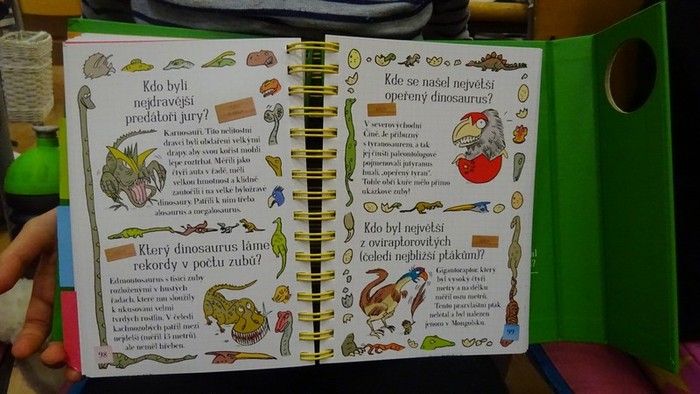 Kdo byli
nejdravější
predátoři jury?
Karnosauři. Tito nelítostní
dravci byli obdařeni velkými
drápy, aby svou kořist mohli
lépe roztrhat. Měřili jako
čtyři auta v řadě, měli
velkou hmotnost a klidně
zaútočili i na velké býložravé
dinosaury. Patřili k nim třeba
alosaurus a megalosaurus.
Který dinosaurus láme
rekordy v počtu zubů?
Edmontosaurus s tisíci zuby
rozloženými v hustých
řadách, které mu sloužily
k ukusování velmi
tvrdých rostlin. V čeledi
kachnozobých patřil mezi
nejdelší (měřil 13 metrů),
ale neměl hřeben.
98
Kde se našel největší
opeřený dinosaurus?
V severovýchodní
Číně. Je příbuzný
s tyranosaurem, a tak
jej čínští paleontologové
pojmenovali jutyranus
huali, „opeřený tyran".
Tohle obří kuře mělo přímo
ukázkové zuby!
Kdo byl největší
z oviraptorovitých
(čeledi nejbližší ptákům)?
Gigantoraptor, který
byl vysoký čtyři
metry a na délku
měřil osm metrů.
Tento prazvláštní pták
nelétal a byl nalezen
jenom v Mongolsku.
99